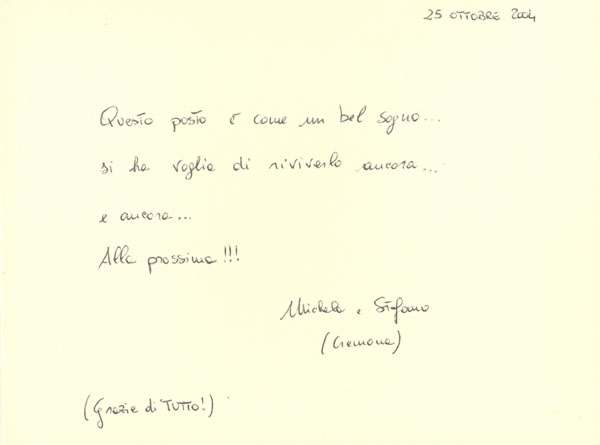 25 OTTOBRE 2004
Questo posto è come un bel sogno...
si ha voglia di riviverlo ancora...
e ancora...
Alla prossima!!!
Michela e Stefano
(Cremona)
(Grazie di TUTTO!)